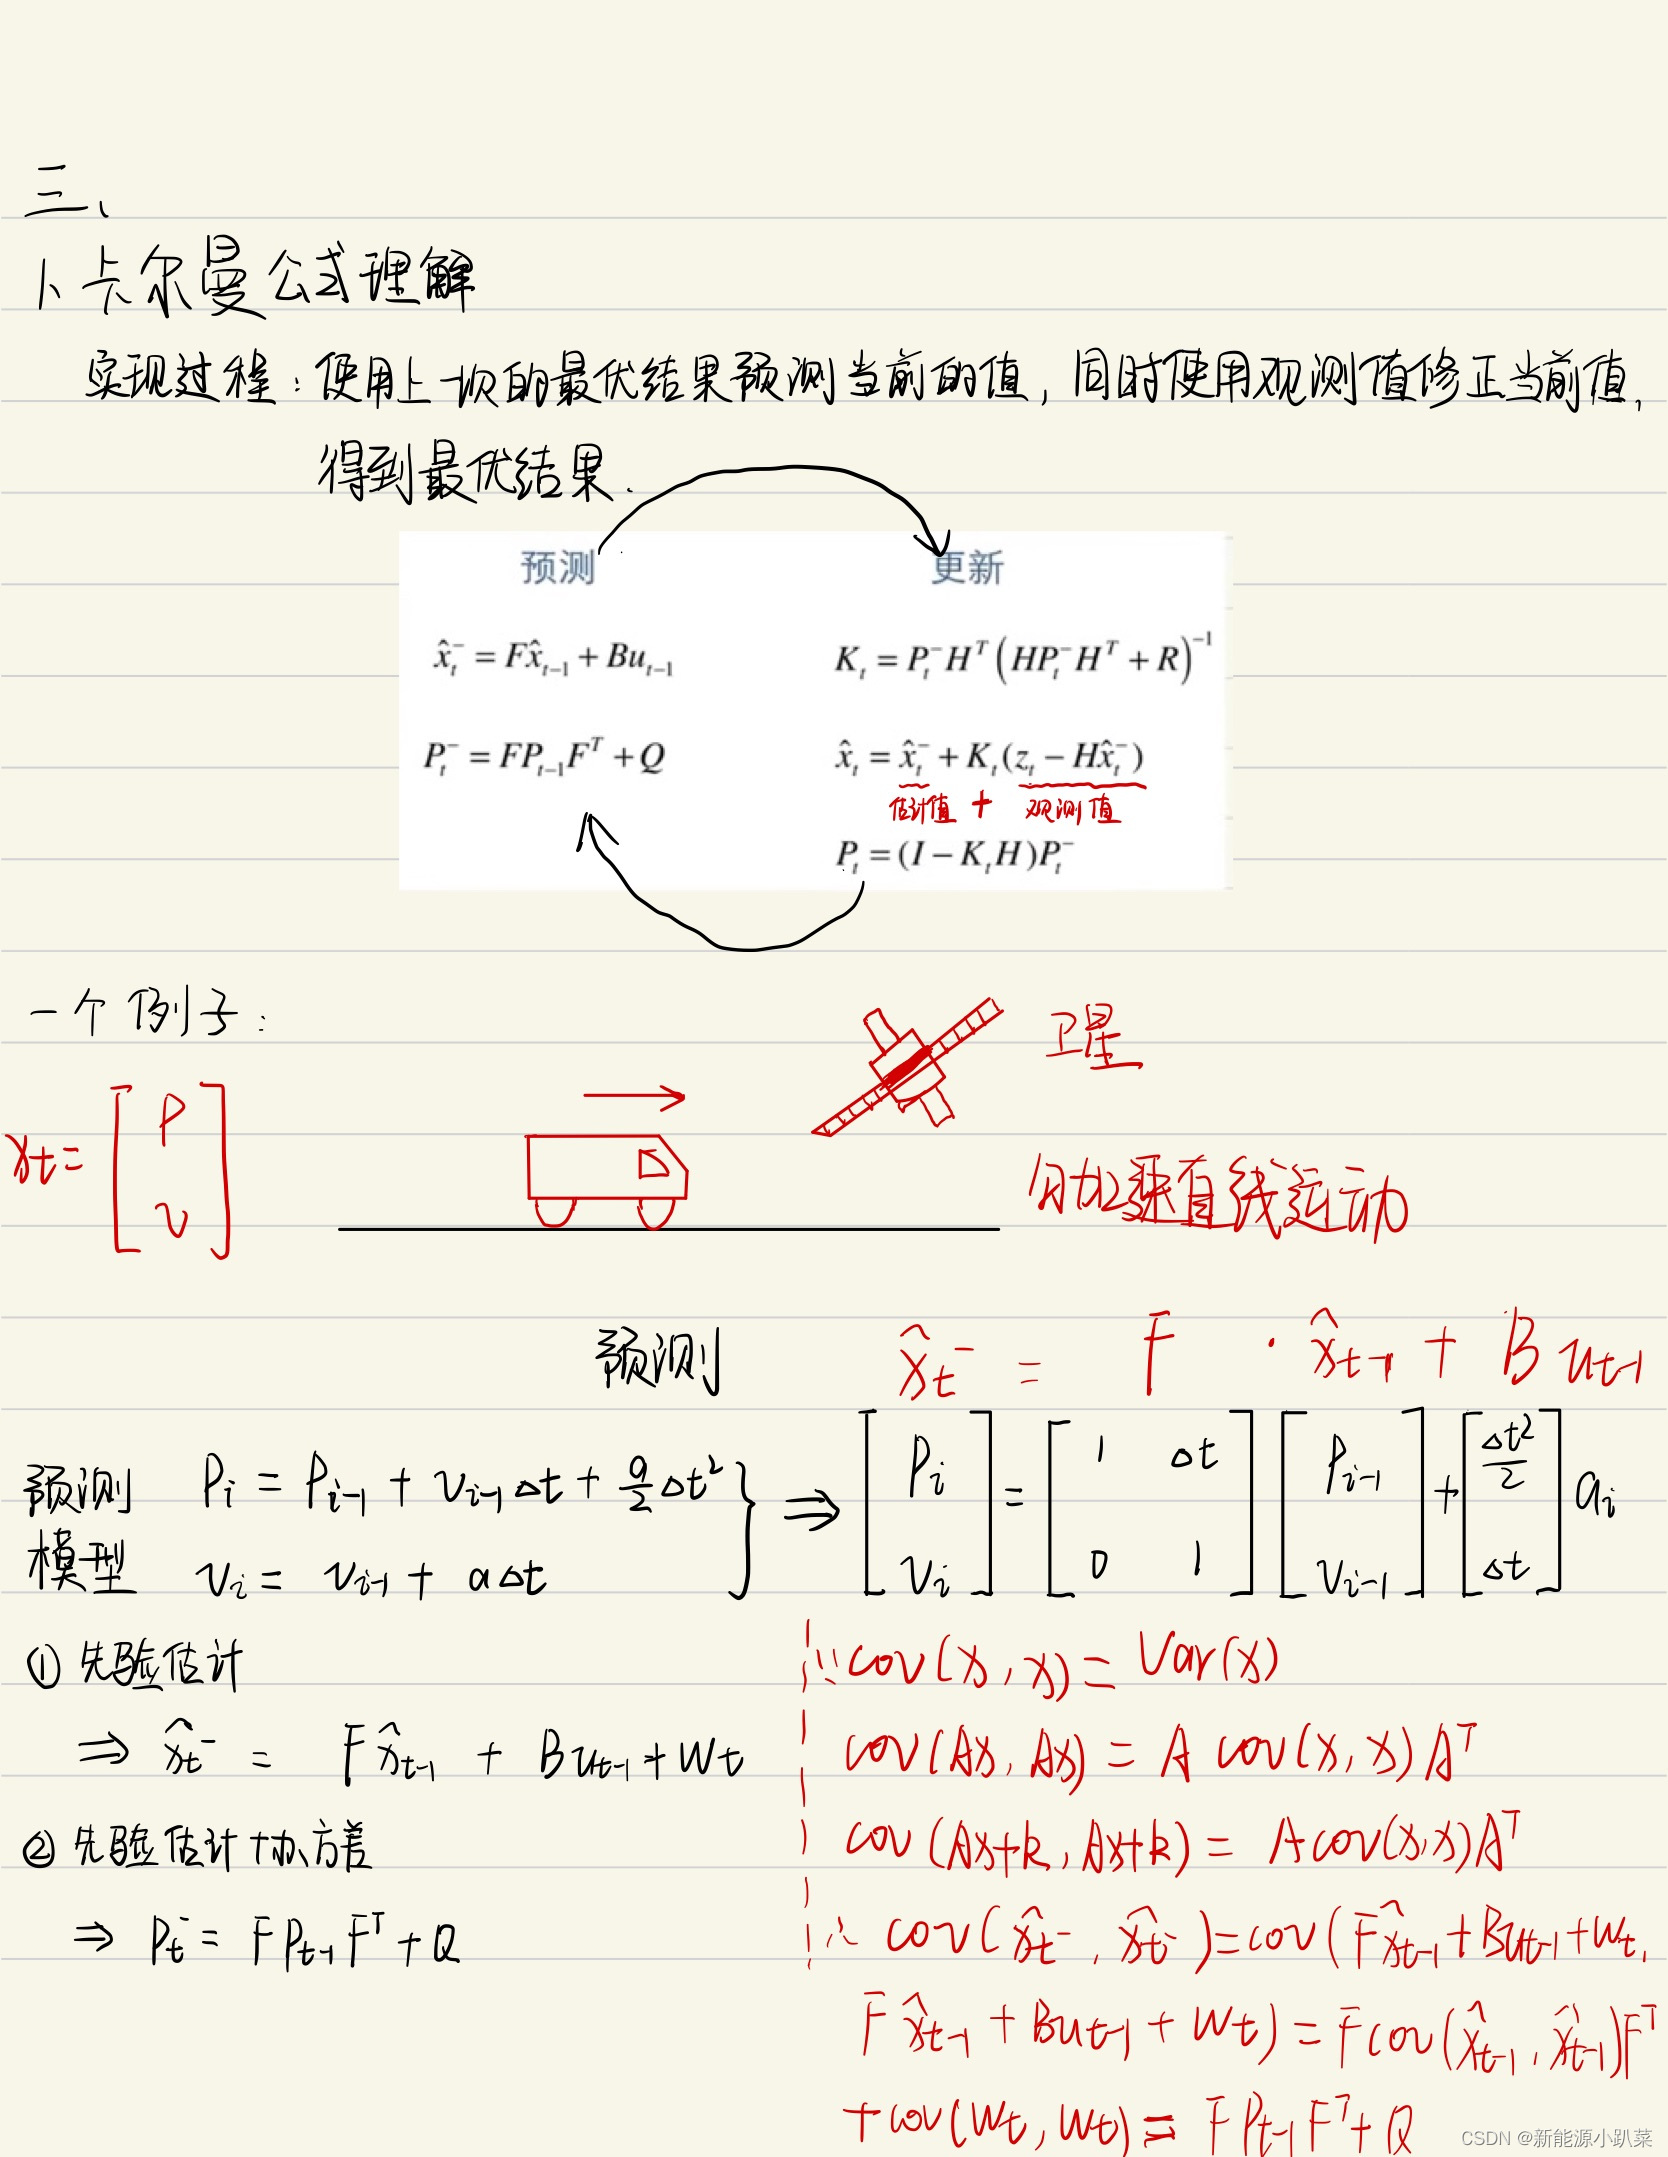 三、
1、卡尔曼公式理解
实现过程：使用上一次的最优结果预测当前的值，同时使用观测值修正当前值，
得到最优结果．
预测 更新
x̂ₜ⁻ = Fx̂ₜ₋₁ + Buₜ₋₁ Kₜ = Pₜ⁻Hᵀ(HPₜ⁻Hᵀ + R)⁻¹
Pₜ⁻ = FPₜ₋₁Fᵀ + Q x̂ₜ = x̂ₜ⁻ + Kₜ(zₜ − Hx̂ₜ⁻)
估计值 + 观测值
Pₜ = (I − KₜH)Pₜ⁻
一个例子：
卫星
xₜ = [P v]
匀加速直线运动
预测 x̂ₜ⁻ = F · x̂ₜ₋₁ + B uₜ₋₁
预测模型
Pᵢ = Pᵢ₋₁ + vᵢ₋₁Δt + a/2 Δt²
vᵢ = vᵢ₋₁ + aΔt
⇒ [Pᵢ vᵢ] = [1 Δt 0 1] [Pᵢ₋₁ vᵢ₋₁] + [Δt²/2 Δt] aᵢ
① 先验估计
⇒ x̂ₜ⁻ = Fx̂ₜ₋₁ + Buₜ₋₁ + wₜ
② 先验估计协方差
⇒ Pₜ⁻ = FPₜ₋₁Fᵀ + Q
∵ cov(x, x) = Var(x)
cov(Ax, Ax) = A cov(x, x)Aᵀ
cov(Ax+k, Ax+k) = A cov(x, x)Aᵀ
∴ cov(x̂ₜ⁻, x̂ₜ⁻) = cov(Fx̂ₜ₋₁ + Buₜ₋₁ + wₜ,
Fx̂ₜ₋₁ + Buₜ₋₁ + wₜ) = Fcov(x̂ₜ₋₁, x̂ₜ₋₁)Fᵀ
+ cov(wₜ, wₜ) = FPₜ₋₁Fᵀ + Q
CSDN @新能源小趴菜